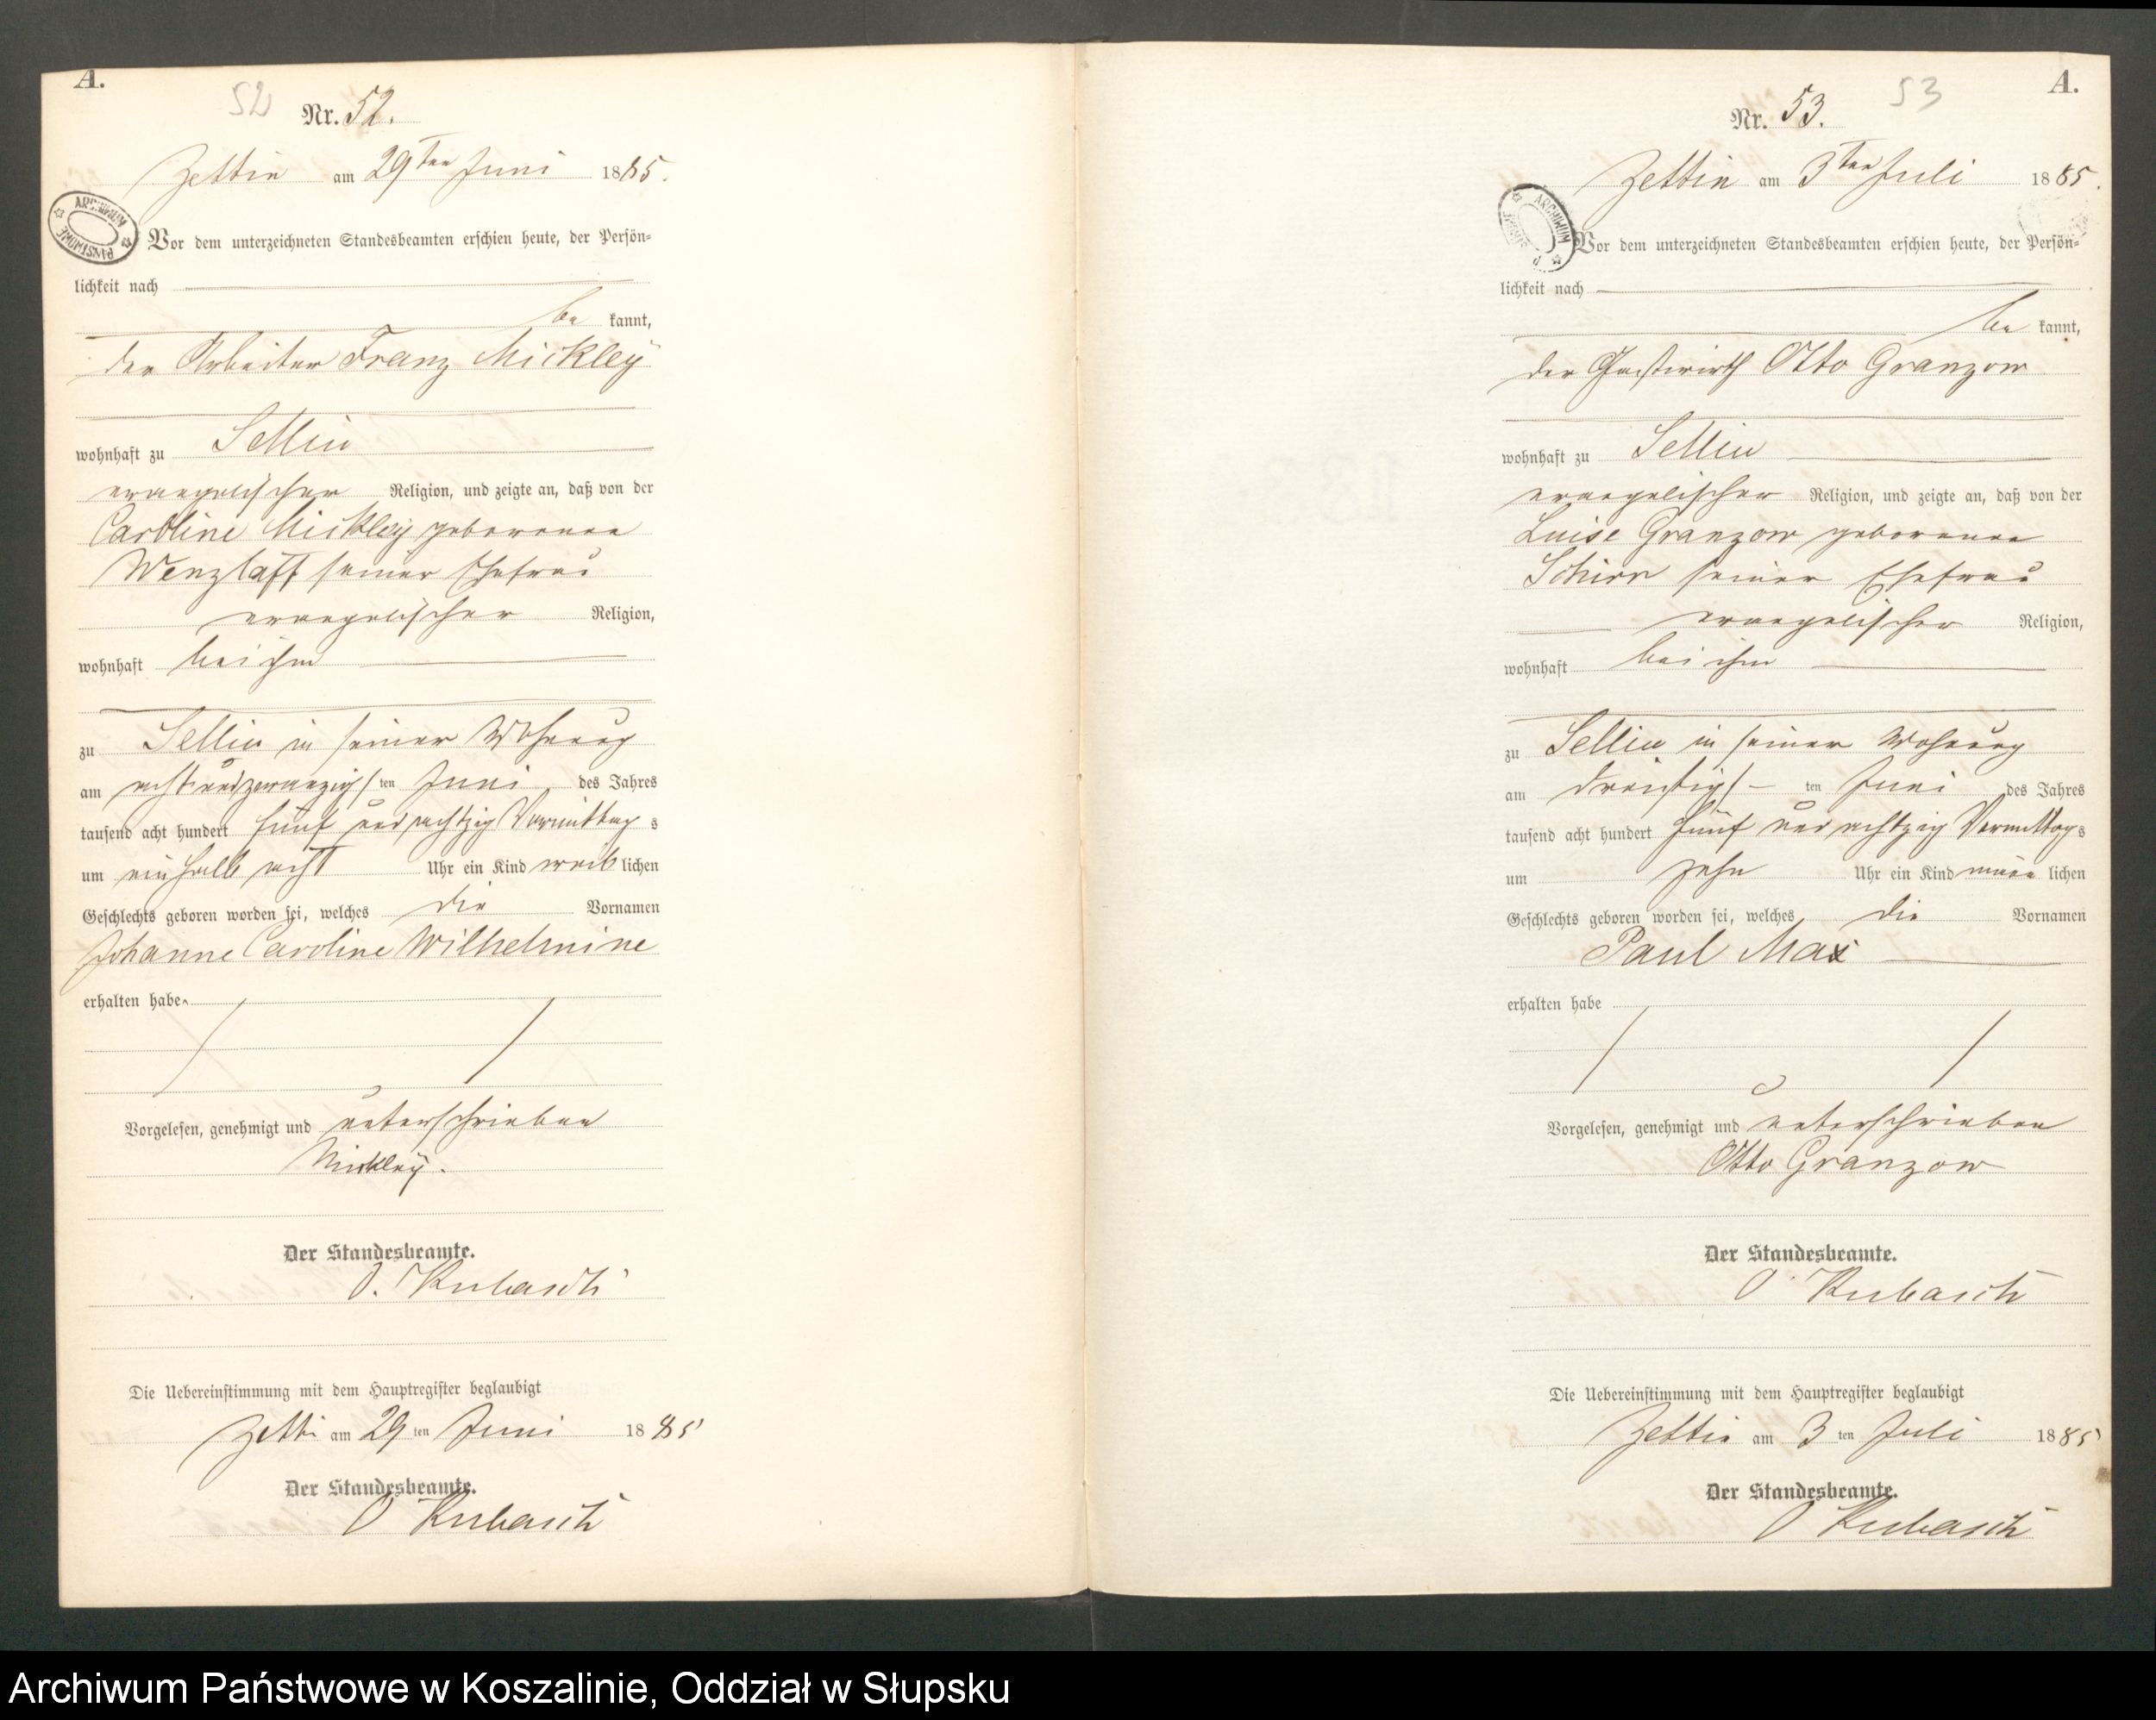 A.
52
Nr. 52.
Zettin am 29ten Juni 1885.
ARCHIWUM PAŃSTWOWE
Vor dem unterzeichneten Standesbeamten erschien heute, der Persön-
lichkeit nach
be kannt,
der Arbeiter Franz Mickley
wohnhaft zu Sellin
evangelischer Religion, und zeigte an, daß von der
Caroline Mickley geborenen
Wenzlaff seiner Ehefrau
evangelischer Religion,
wohnhaft bei ihm
zu Sellin in seiner Wohnung
am acht und zwanzigsten Juni des Jahres
tausend acht hundert fünf und achtzig Vormittags
um ein halb acht Uhr ein Kind weiblichen
Geschlechts geboren worden sei, welches die Vornamen
Johanne Caroline Wilhelmine
erhalten habe.
Vorgelesen, genehmigt und unterschrieben
Mickley.
Der Standesbeamte.
O. Kubasch
Die Uebereinstimmung mit dem Hauptregister beglaubigt
Zettin am 29ten Juni 1885
Der Standesbeamte.
O Kubasch
53
A.
Nr. 53.
Zettin am 3ten Juli 1885.
ARCHIWUM
Vor dem unterzeichneten Standesbeamten erschien heute, der Persön-
lichkeit nach
be kannt,
der Gastwirth Otto Granzow
wohnhaft zu Sellin
evangelischer Religion, und zeigte an, daß von der
Luise Granzow geborenen
seiner Ehefrau
evangelischer Religion,
wohnhaft bei ihm
zu Sellin in seiner Wohnung
am dreißigsten Juni des Jahres
tausend acht hundert fünf und achtzig Vormittags
um zehn Uhr ein Kind männlichen
Geschlechts geboren worden sei, welches die Vornamen
Paul Max
erhalten habe
Vorgelesen, genehmigt und unterschrieben
Otto Granzow
Der Standesbeamte.
O Kubasch
Die Uebereinstimmung mit dem Hauptregister beglaubigt
Zettin am 3ten Juli 1885
Der Standesbeamte.
O Kubasch
Archiwum Państwowe w Koszalinie, Oddział w Słupsku